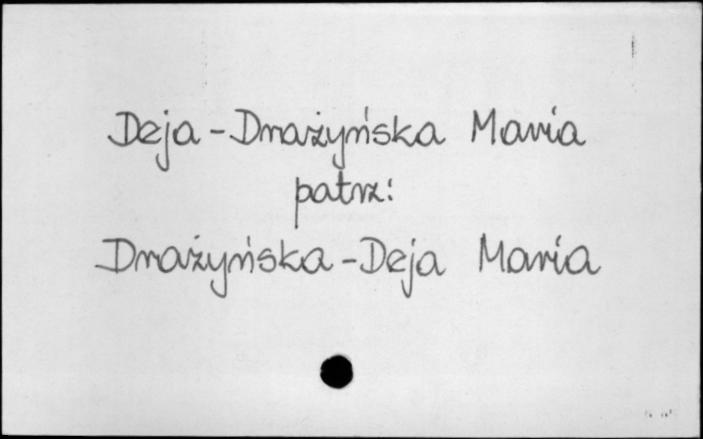 Deja-Drażyńska Maria
patrz:
Drażyńska-Deja Maria